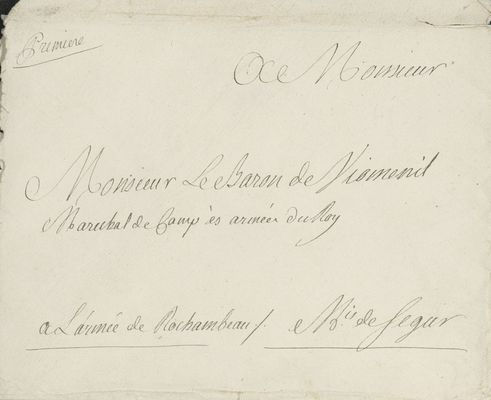 Premiere
A Monsieur
Monsieur Le Baron de Viomenil
Marechal de Camp ès armées du Roy
a L'armée de Rochambeau /. Mis de Segur